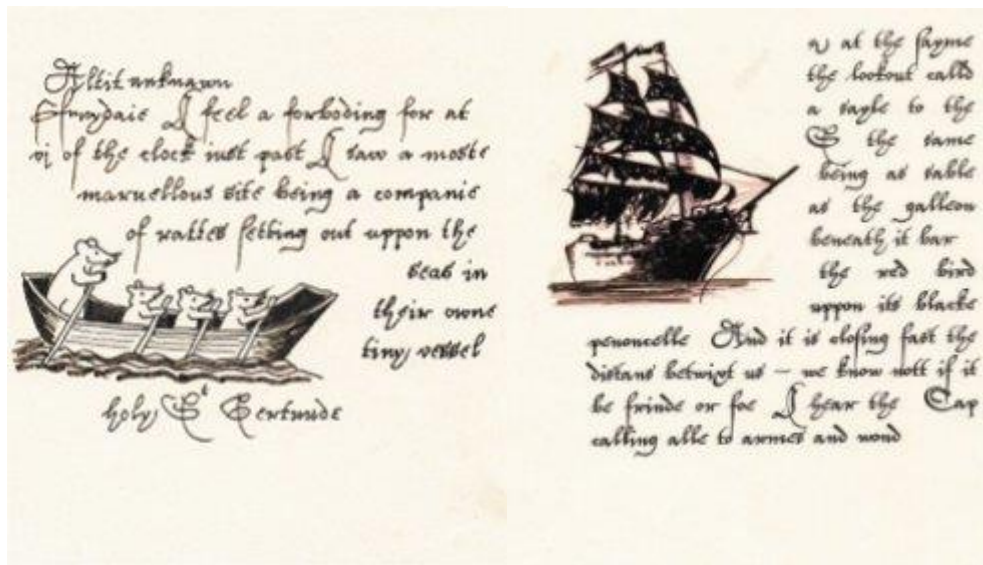 Altit unknawn
Thursdaie I feel a forboding for at
vj of the clock iust past I saw a moste
maruellous site being a companie
of rattes setting out uppon the
seas in
their owne
tiny vessel
holy St Gertrude
at the sayme
the lookout calld
a sayle to the
S the same
being as sable
as the galleon
beneath it bar
the red bird
uppon its blacke
penoncelle And it is closing fast the
distans betwixt us – we know nott if it
be frinde or foe I hear the Cap
calling alle to armes and wond